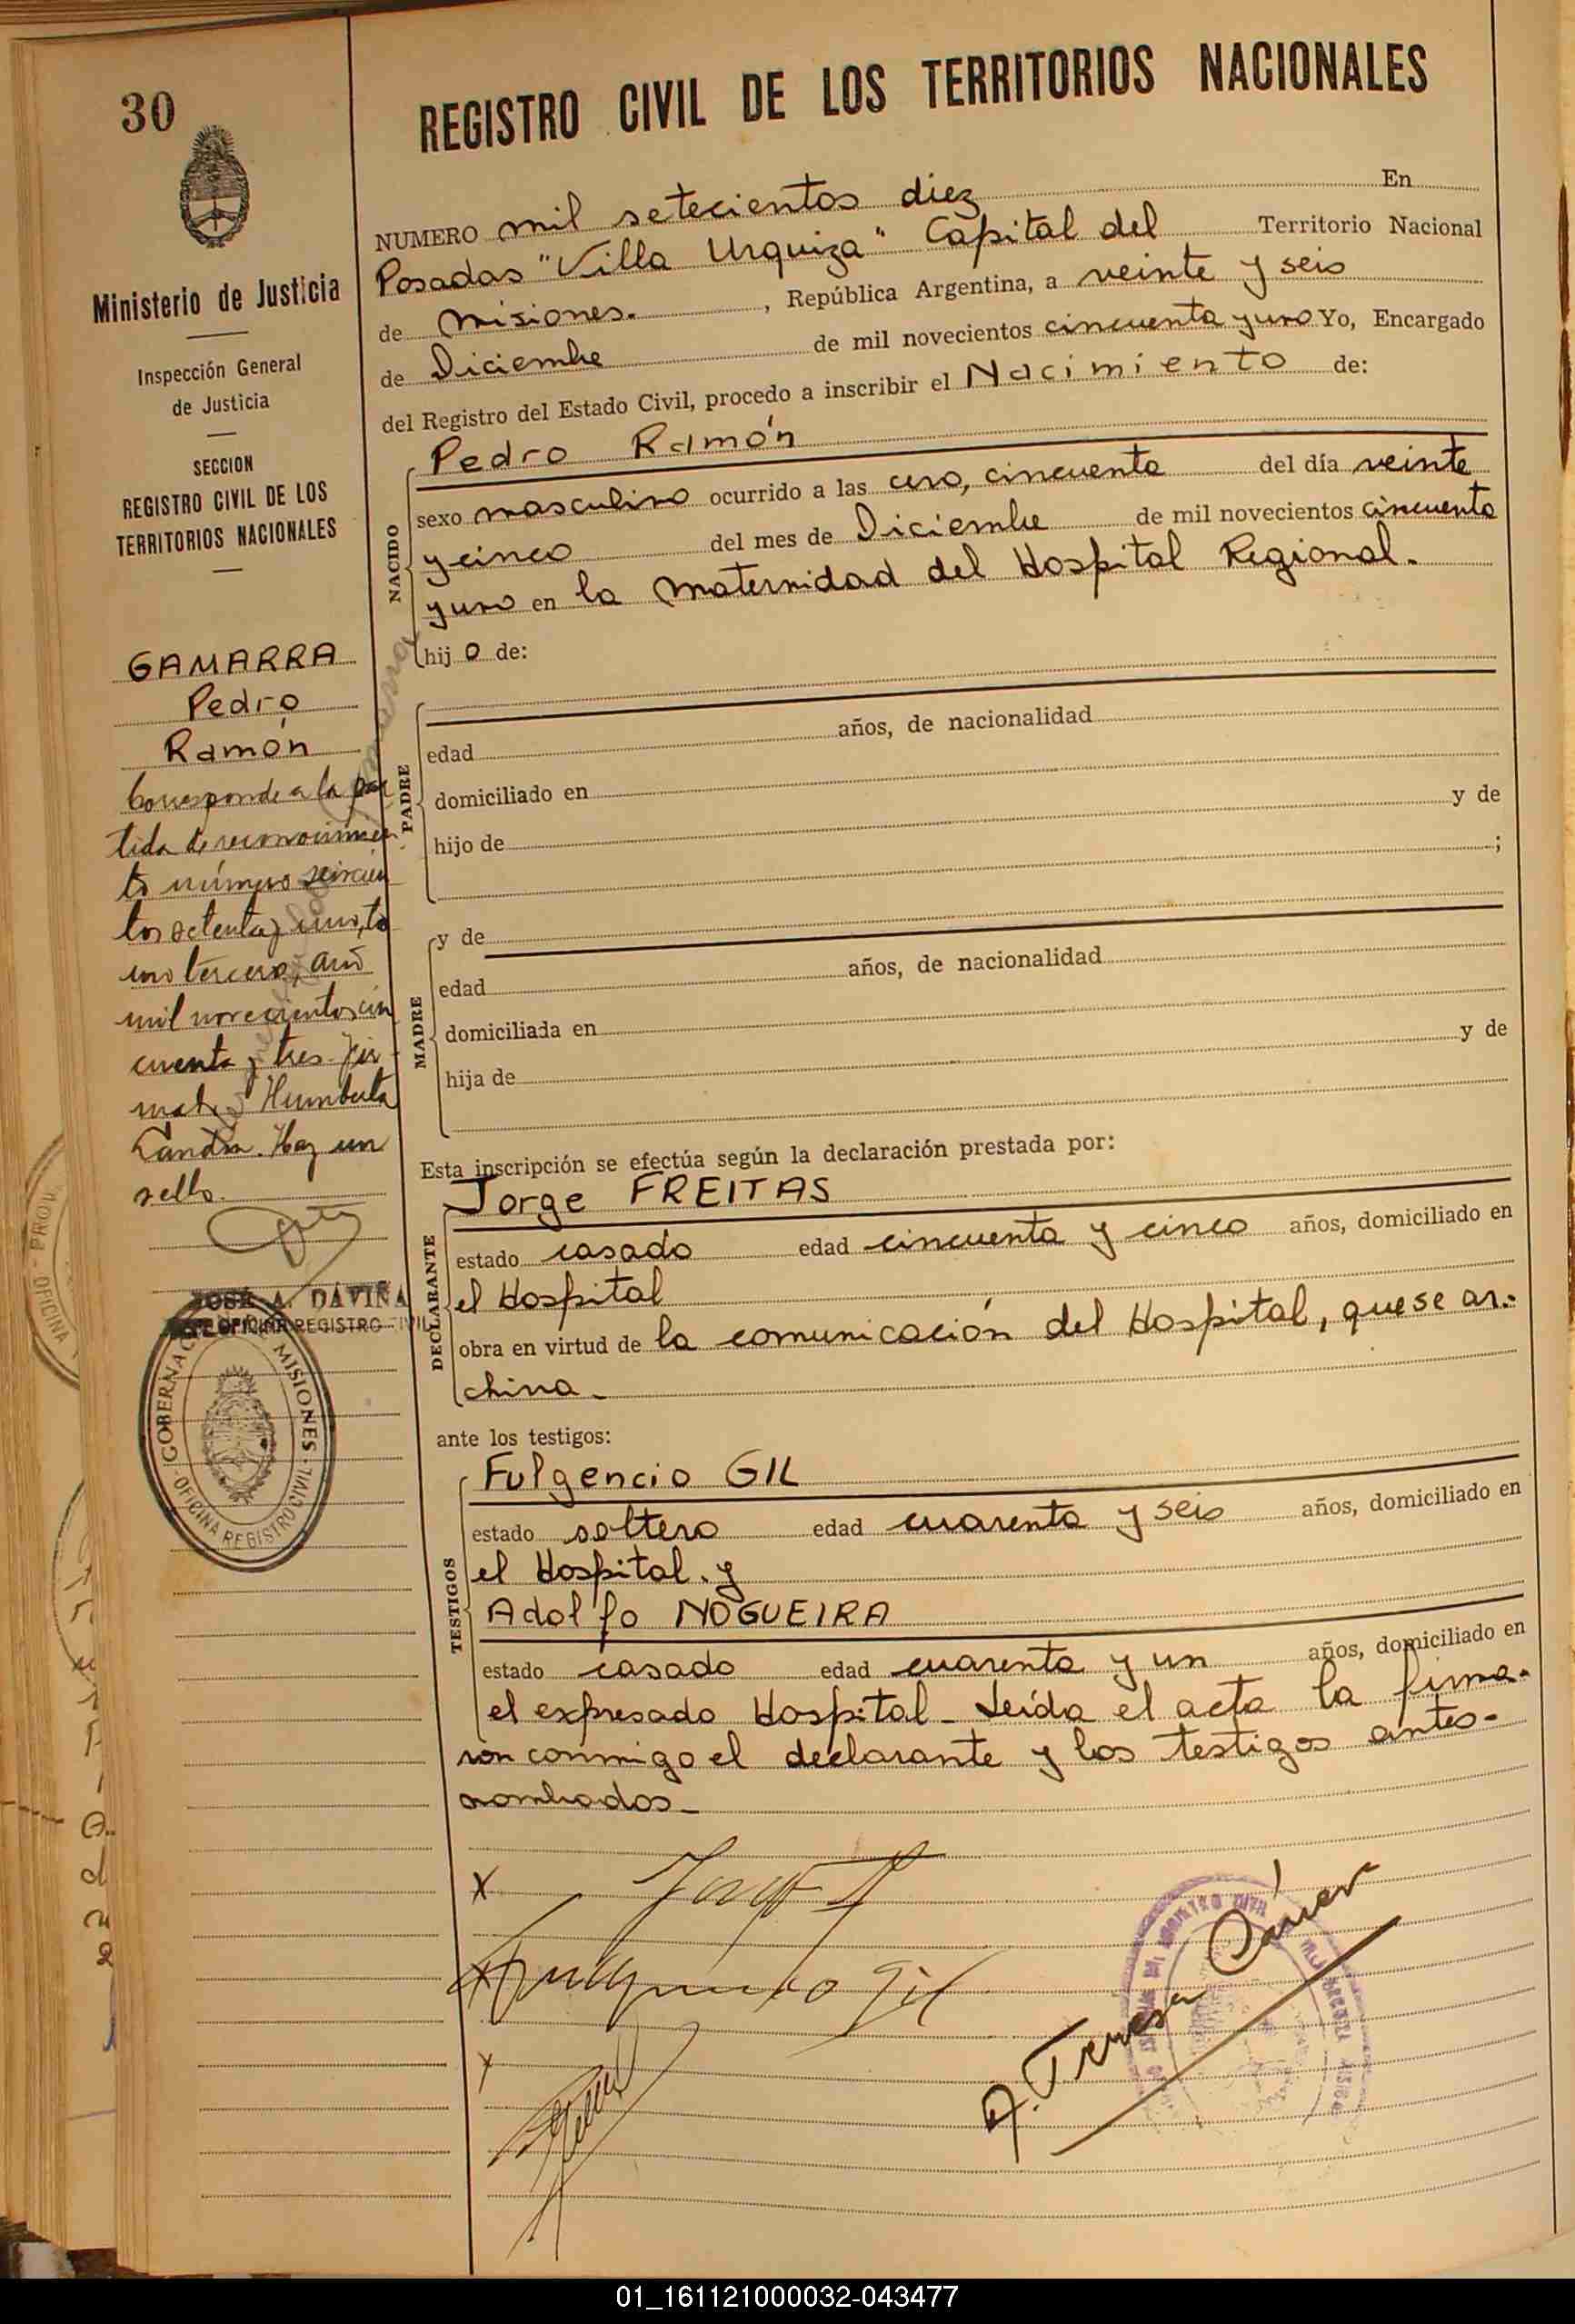 30
Ministerio de Justicia
Inspección General
de Justicia
SECCION
REGISTRO CIVIL DE LOS
TERRITORIOS NACIONALES
GAMARRA
Pedro
Ramón
Corresponde a la par
tida de reconocimien
to número seiscien
tos setenta y uno, to
mo tercero, año
mil novecientos cin
cuenta y tres. Fir
mado Humberto
Landra. Hay un
sello.
JOSÉ A. DAVIÑA
JEFE OFICINA REGISTRO CIVIL
GOBERNAC MISIONES
OFICINA REGISTRO CIVIL
REGISTRO CIVIL DE LOS TERRITORIOS NACIONALES
NUMERO mil setecientos diez En
Posadas "Villa Urquiza" Capital del Territorio Nacional
de Misiones. , República Argentina, a veinte y seis
de Diciembre de mil novecientos cincuenta y uno Yo, Encargado
del Registro del Estado Civil, procedo a inscribir el Nacimiento de:
NACIDO
Pedro Ramón
sexo masculino ocurrido a las cero, cincuenta del día veinte
y cinco del mes de Diciembre de mil novecientos cincuenta
y uno en la Maternidad del Hospital Regional.
hij o de:
PADRE
edad años, de nacionalidad
domiciliado en
hijo de y de
;
MADRE
y de
edad años, de nacionalidad
domiciliada en
hija de y de
Esta inscripción se efectúa según la declaración prestada por:
DECLARANTE
Jorge FREITAS
estado casado edad cincuenta y cinco años, domiciliado en
el Hospital
obra en virtud de la comunicación del Hospital, que se ar-
chiva.
ante los testigos:
TESTIGOS
Fulgencio GIL
estado soltero edad cuarenta y seis años, domiciliado en
el Hospital. y
Adolfo NOGUEIRA
estado casado edad cuarenta y un años, domiciliado en
el expresado Hospital - Leída el acta la firma-
ron conmigo el declarante y los testigos antes-
nombrados.
x
x Fulgencio Gil
x
A. Teresa
01_161121000032-043477